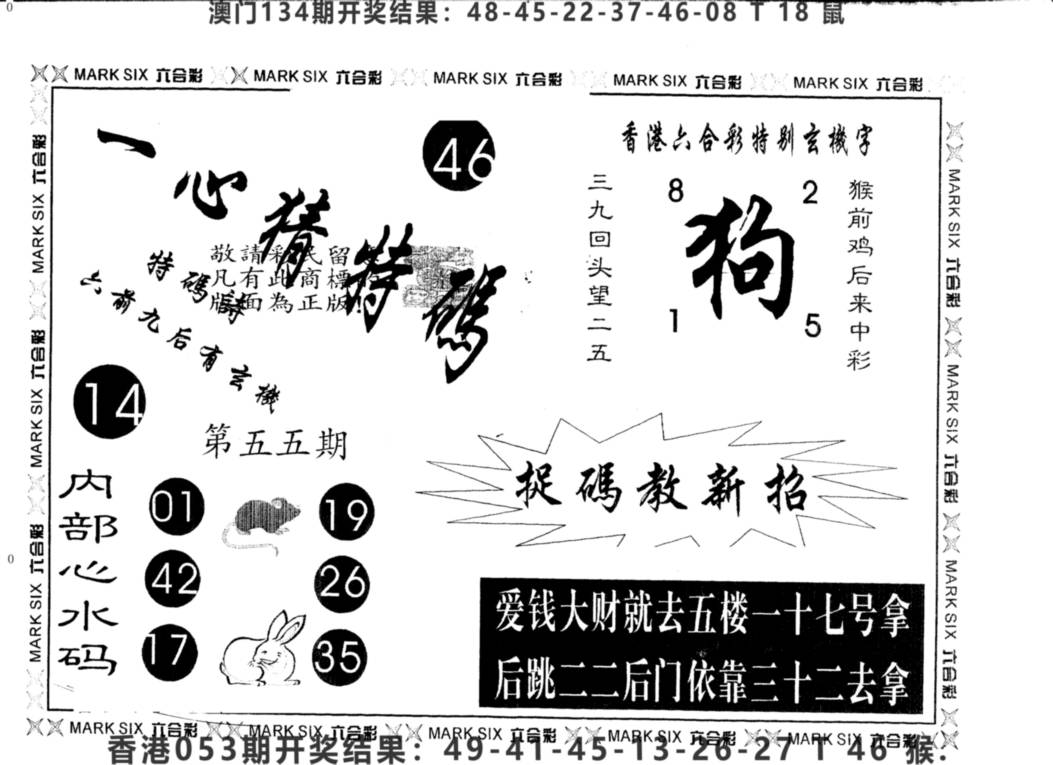 澳门134期开奖结果：48-45-22-37-46-08 T 18 鼠
MARK SIX 六合彩 MARK SIX 六合彩 MARK SIX 六合彩 MARK SIX 六合彩 MARK SIX 六合彩
MARK SIX 六合彩 MARK SIX 六合彩 MARK SIX 六合彩
一心猜特碼
46
敬請彩民留
凡有此商標
版面為正版!
特碼詩
六前九后有玄機
14
第五五期
内部心水码
01 19
42 26
17 35
香港六合彩特别玄機字
三九回头望二五
8 2
狗
1 5
猴前鸡后来中彩
捉碼教新招
爱钱大财就去五楼一十七号拿
后跳二二后门依靠三十二去拿
MARK SIX 六合彩 MARK SIX 六合彩 MARK SIX 六合彩
MARK SIX 六合彩 MARK SIX 六合彩 MARK SIX 六合彩 MARK SIX 六合彩 MARK SIX 六合彩
香港053期开奖结果：49-41-45-13-26-27 T 46 猴.